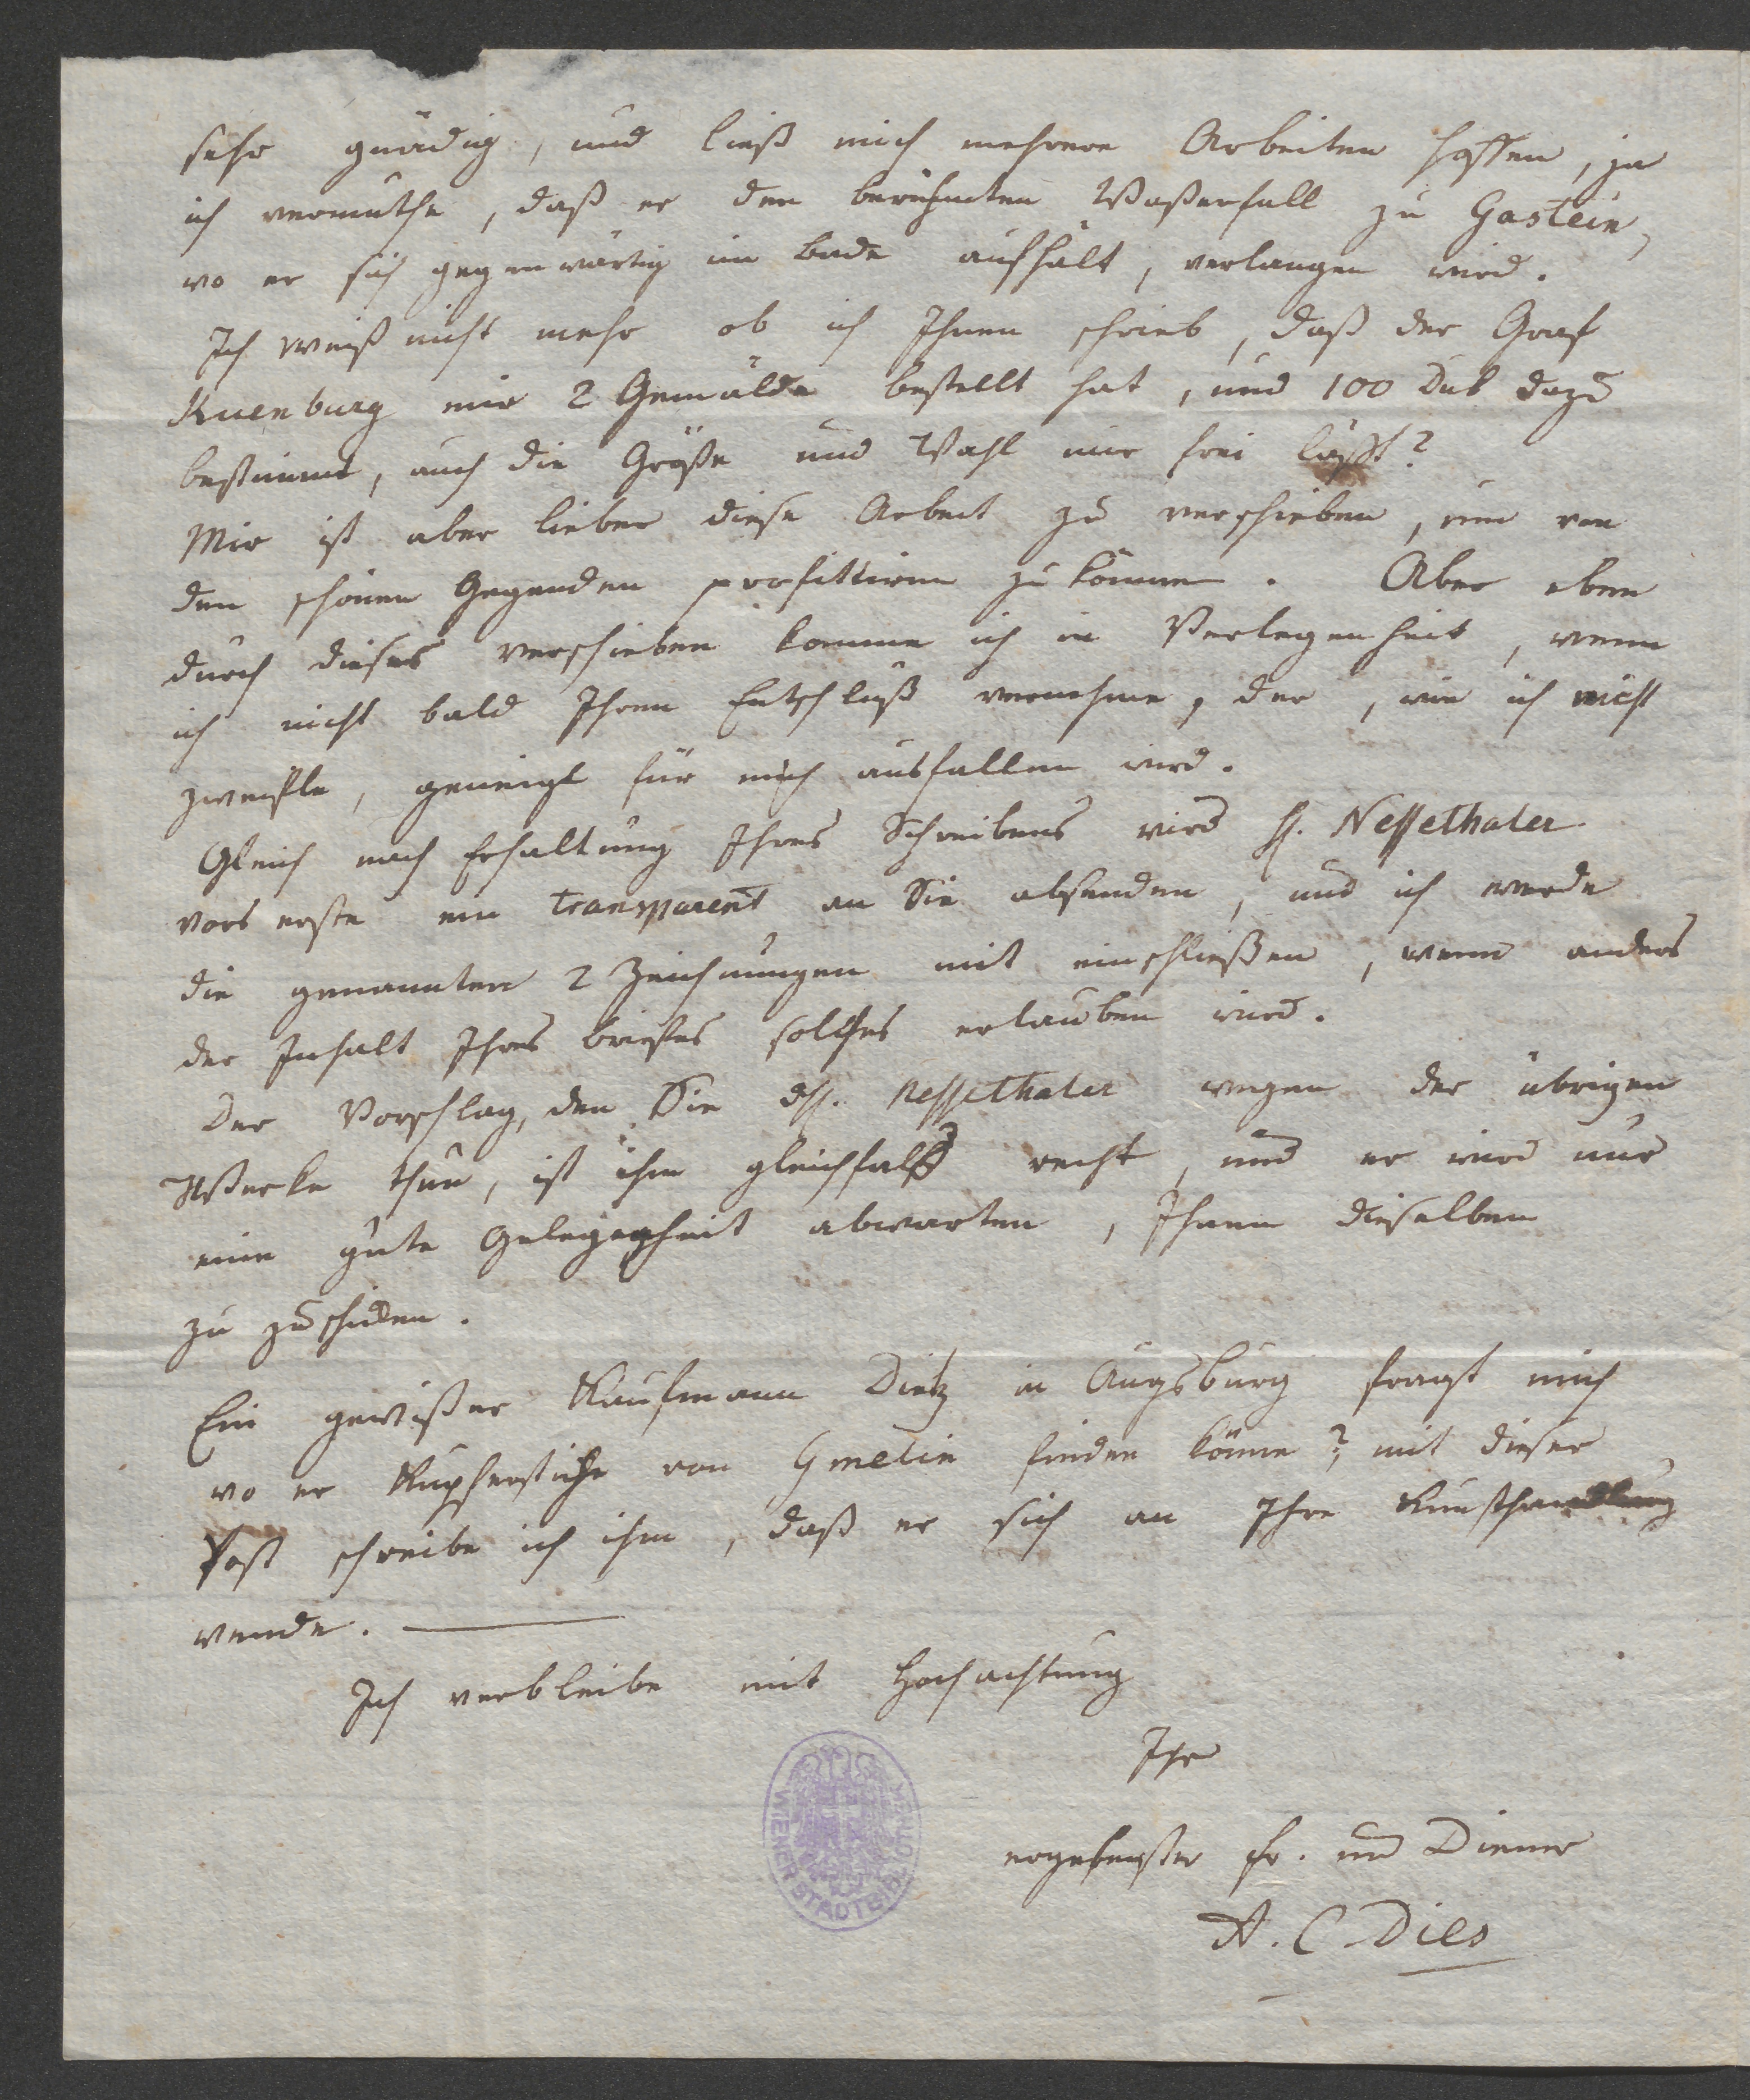 sehr gnädig, und ließ mich mehrere Arbeiten hoffen, ja
ich vermuthe, daß er den berühmten Waßerfall zu Gastein,
wo er sich gegenwärtig im bade aufhält, verlangen wird.
Ich weiß nicht mehr ob ich Ihnen schrieb, daß der Graf
Kuenburg mir 2 Gemälde bestellt hat, und 100 Duk dazu
bestimmt, auch die Größe und Wahl mir frei läßt?
Mir ist aber lieber diese Arbeit zu verschieben, um von
den schönen Gegenden profittiren zu können. Aber eben
durch dieses verschieben komme ich in Verlegenheit, wenn
ich nicht bald Ihren Entschluß vernehme, der, wie ich nicht
zweifle, geneigt für mich ausfallen wird.
Gleich nach Erhaltung Ihres Schreibens wird H. Nesselthaler
vors erste ein transparent an Sie absenden, und ich werde
die genannten 2 Zeichnungen mit einschließen, wenn anders
der Inhalt Ihres briefes solches erlauben wird.
Der Vorschlag, den Sie dH. Nesselthaler wegen der übrigen
Werke thun, ist ihm gleichfals recht, und er wird nur
eine gute Gelegenheit abwarten, Ihnen dieselben
zu zuschicken.
Ein gewißer Kaufmann Dietz in Augsburg fragt mich
wo er Kupferstiche von Gmelin finden könne? mit dieser
Post schreibe ich ihm, daß er sich an Ihre Kunsthandlung
wende.
Ich verbleibe mit Hochachtung
Ihr
ergebenster Fr. und Diener
A. C Dies
WIENER STADTBIBLIOTHEK